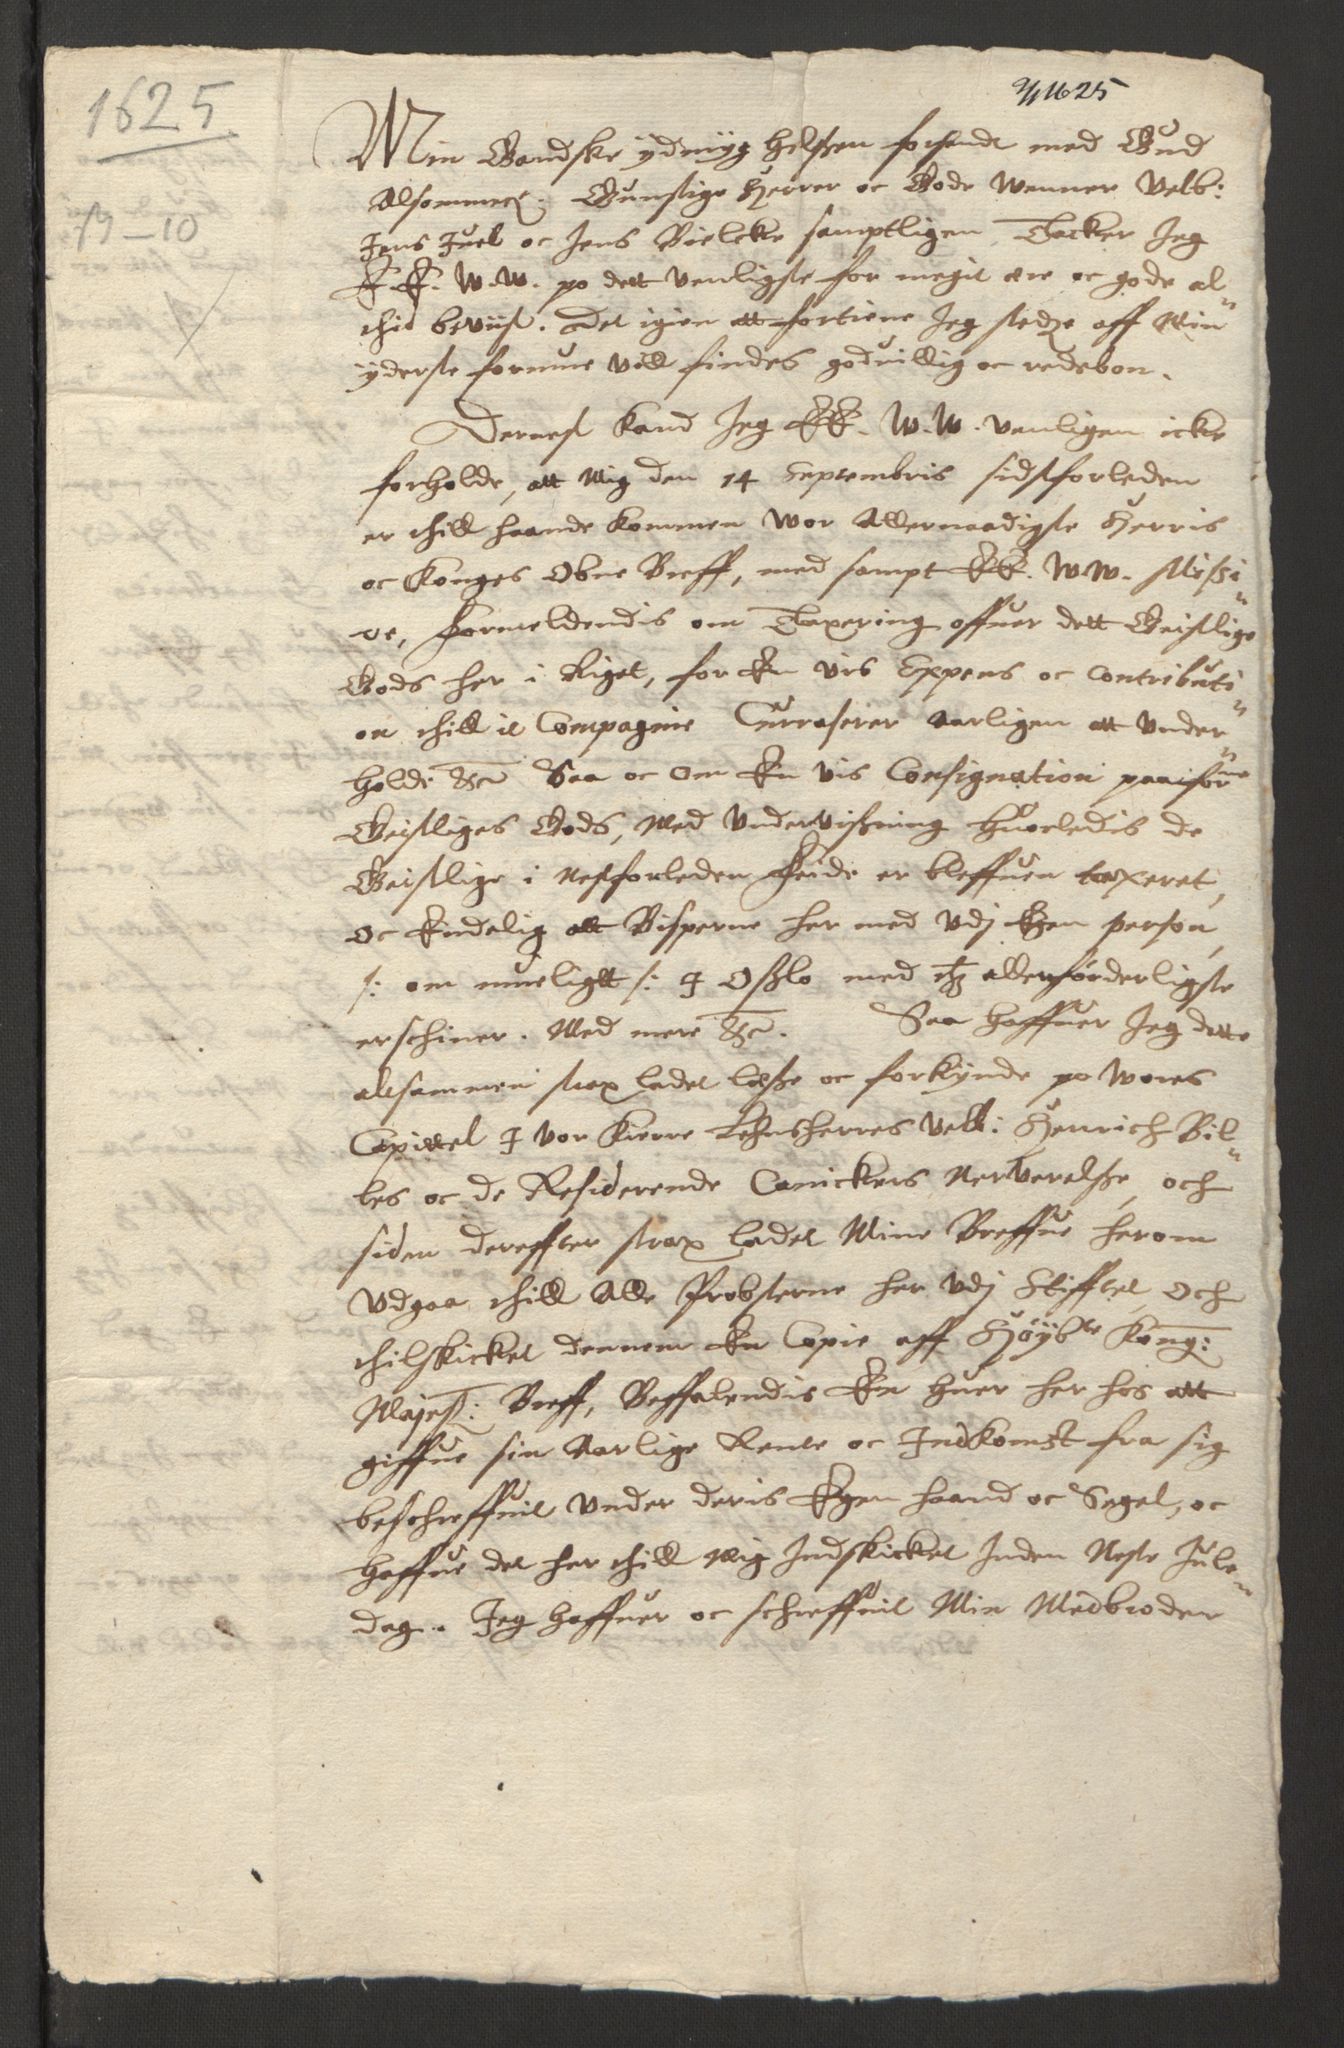 1625
2/1 1625
B-10
Min Gandske ydmyg helsen forsendt med Gud
Alsommect. Gunstige Herrer oc Gode Wenner Velb:
Jens Juel oc Jens Bielcke samptligen, Tacker Jeg
E.E. W.W. po dett venligste for megit ære oc gode al„
thid beviist. Det igien att fortiene Jeg stedze aff Min
yderste formue vill findes goduillig oc redebon.
Dernest kand Jeg EE. W.W. venligen icke
forholde, att Mig den 14 Septembris sidstforleden
er thill haande kommen Wor Allernaadigste Herris
oc Konges Obne Breff, med sampt EE. W.W. Missi„
ve, Formeldendis om Taxering offuer dett Geistlige
Gods her i Riget, for En vis Expens oc Contributi„
on thill it Compagnie Curraserer Aarligen att under„
holde &c Saa oc Om En vis Consignation paa for„ne
Geistliges Gods, Med Undervissning huorledis de
Geistlige i Nestforleden Feide er bleffuen taxeret,
Oc Endelig att Bisperne her med Udj Egen person,
/: om mueligtt :/ J Osslo med thet allerförderligste
erschiner. Med mere &c. Saa haffuer Jeg dette
altsammen strax ladet læsse oc forkynde po Wores
Capittel J vor kierre Lehnsherres Velb: Henrich Bil„
les oc de Residerende Canickers Nerverelsse, och
siden dereffter strax ladet Mine Breffue herom
Udgaa thill Alle Probsterne her Udj Stifftet, Och
thilskicket dennem En Copie aff Höyb:te Kong:
Majest: Breff, Beffalendis En huer her hos att
giffue sin Aarlige Rente oc Indkomst fra sig
beschreffuit Under deris Egen haand oc Segel, oc
haffue det her thill Mig Indskicket Inden Neste Jule„
dag. Jeg haffuer oc schreffuit Min Medbroder